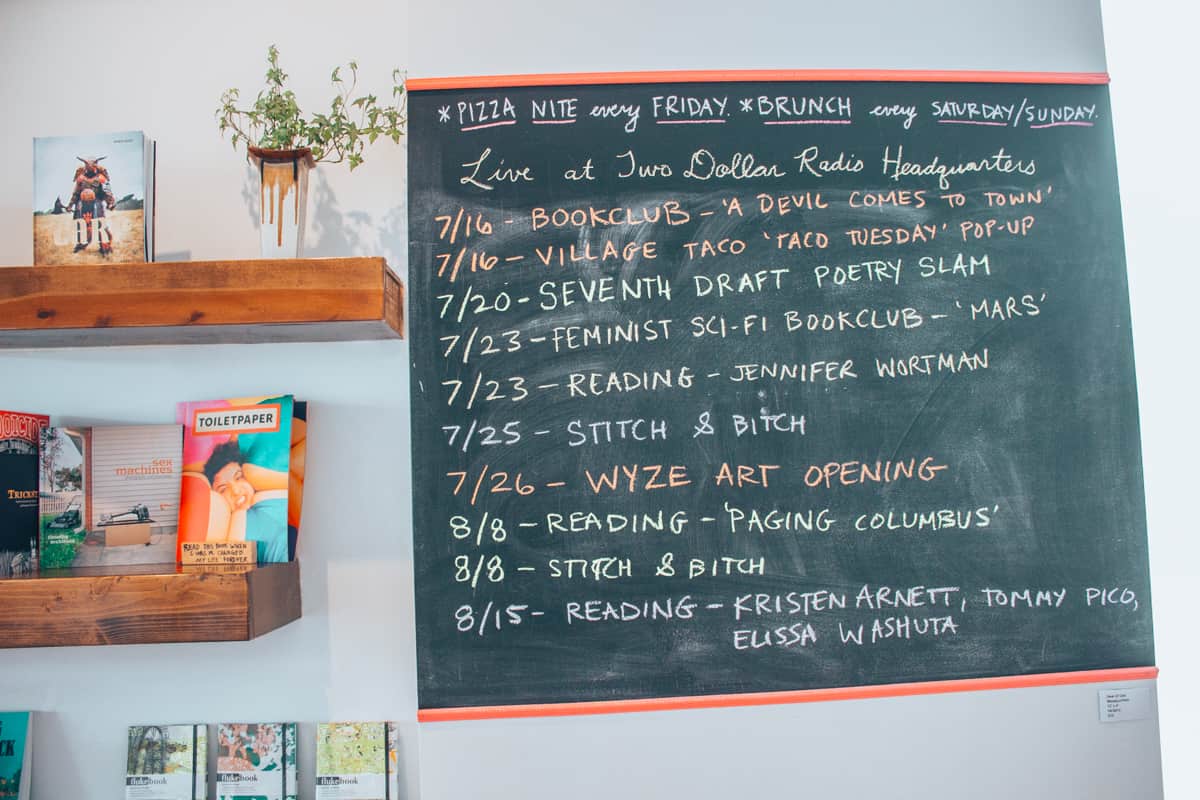 *PIZZA NITE every FRIDAY. *BRUNCH every SATURDAY/SUNDAY.
Live at Two Dollar Radio Headquarters
7/16 - BOOKCLUB - 'A DEVIL COMES TO TOWN'
7/16 - VILLAGE TACO 'TACO TUESDAY' POP-UP
7/20 - SEVENTH DRAFT POETRY SLAM
7/23 - FEMINIST SCI-FI BOOKCLUB - 'MARS'
7/23 - READING - JENNIFER WORTMAN
7/25 - STITCH & BITCH
7/26 - WYZE ART OPENING
8/8 - READING - 'PAGING COLUMBUS'
8/8 - STITCH & BITCH
8/15 - READING - KRISTEN ARNETT, TOMMY PICO,
ELISSA WASHUTA
sex
machines
TOILETPAPER
READ THIS BOOK WHEN
MY LIFE FOREVER
flukebook
flukebook
flukebook